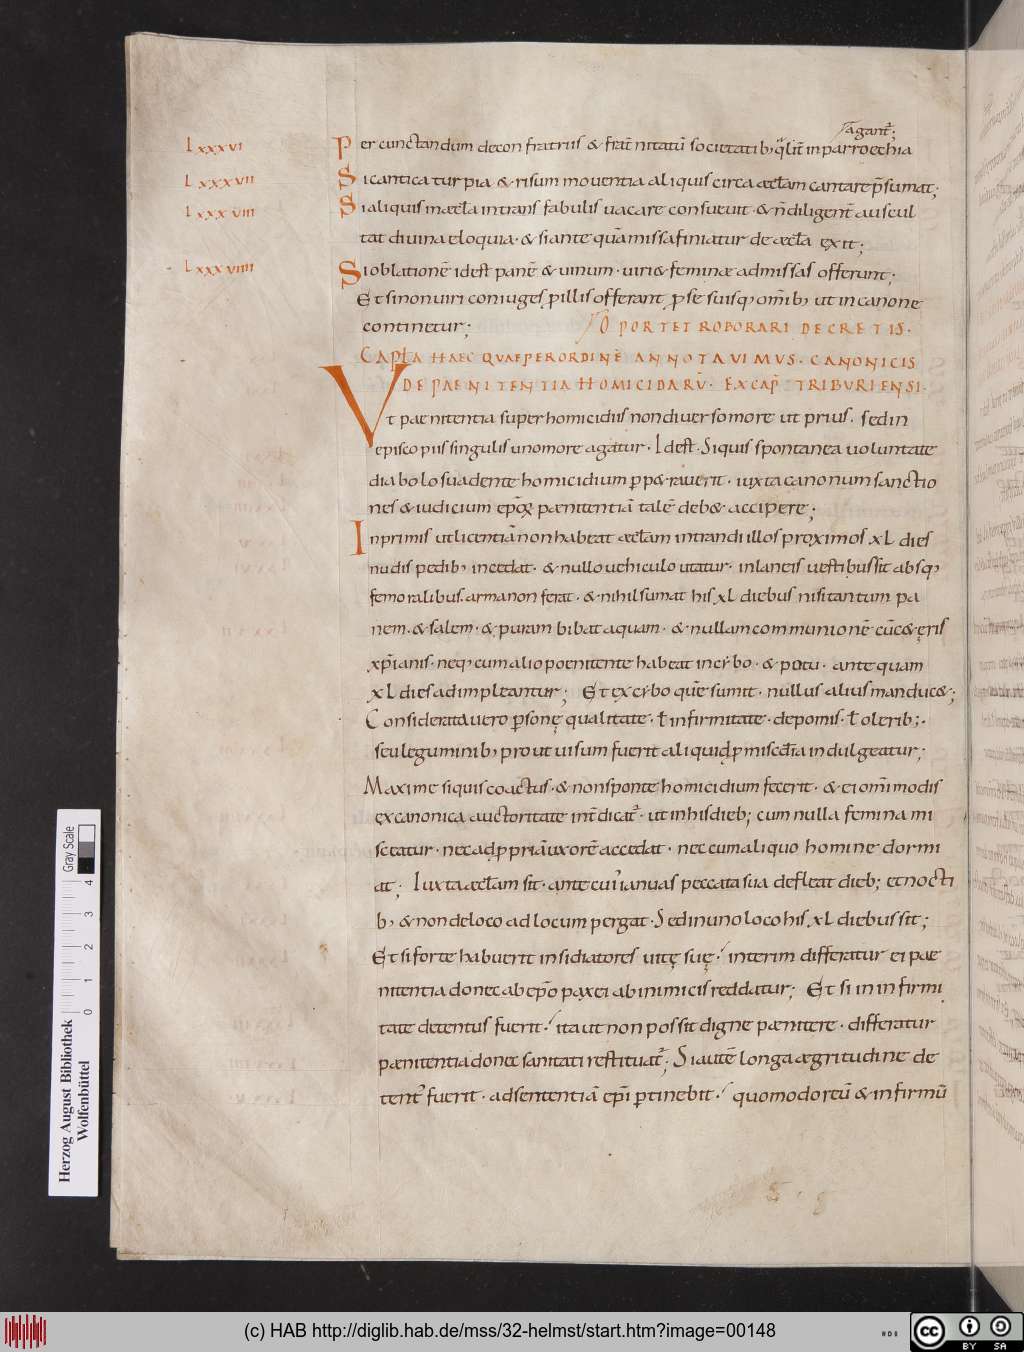 agant᷑;
Lxxxvi Per cunctandum de confratriis & frat̄nitatū societatib; q͛lit̄ in parroechia
Lxxxvii Si cantica turpia & risum moventia aliquis circa æccl̄am cantare p̄sumat;
Lxxxviii Si aliquis in æccl̄a intrans fabulis vacare consuevit · & n̄ diligent̄ auscul
tat divina eloquia · & si ante quā missa finiatur de æccl̄a exit;
Lxxxviiii Si oblationē id est panē & vinum · viri & feminæ ad missas offerunt;
Et si non viri coniuges p illis offerant p se suisq; om̄ib; ut in canone
continetur; OPORTET ROBORARI DECRETIS.
CAPL̄A HAEC QUAE PER ORDINĒ ANNOTAVIMUS. CANONICIS
DE PAENITENTIA HOMICIDARŪ. EX CAP̄. TRIBURIENSI.
Vt paenitentia super homicidiis non diverso more ut prius. sed in
episcopiis singulis uno more agatur. Id est. Siquis spontanea voluntate
diabolo suadente homicidium pp&raverit. iuxta canonum sanctio
nes & iudicium ep̄oꝝ pænitentiā talē deb& accipere;
Inprimis ut licentiā non habeat æccl̄am intrandi illos proximos xL dies
nudis pedib; incedat. & nullo vehiculo utatur. in laneis vestibus sit absq;
femoralibus. arma non ferat. & nihil sumat his xL diebus nisi tantum pa
nem. & salem. & puram bibat aquam. & nullam communionē cū c&ęris
xp̄ianis. neq; cum alio poenitente habeat in cybo. & potu. antequam
xL dies adimpleantur; Et ex cybo quē sumit. nullus alius manduc&;
Considerata vero p̱sonę qualitate. ł infirmitate. de pomis. ł olerib;.
seu leguminib; prout visum fuerit aliquid pmiscd̄ia indulgeatur;
Maxime siquis coactus. & non sponte homicidium fecerit. & ei om̄imodis
ex canonica auctoritate int̄dicat᷑. ut in his dieb; cum nulla femina mi
sceatur. nec ad p̱priā uxorē accedat. nec cum aliquo homine dormi
at; Iuxta æccl̄am sit. ante cui᷒ ianuas peccata sua defleat dieb; et nocti
b; & non de loco ad locum pergat. Sed in uno loco his xL diebus sit;
Et si forte habuerit insidiatores vitę suę. interim differatur ei pae
nitentia donec ab ep̄o pax ei ab inimicis reddatur; Et si in infirmi
tate detentus fuerit. ita ut non possit digne pænitere. differatur
pænitentia donec sanitati restituat᷑; Si autē longa ægritudine de
tent᷒ fuerit. ad sententiā ep̄i p̱tinebit. quomodo reū & infirmū
Gray Scale
0 1 2 3 4
Herzog August Bibliothek
Wolfenbüttel
(c) HAB http://diglib.hab.de/mss/32-helmst/start.htm?image=00148
cc BY SA